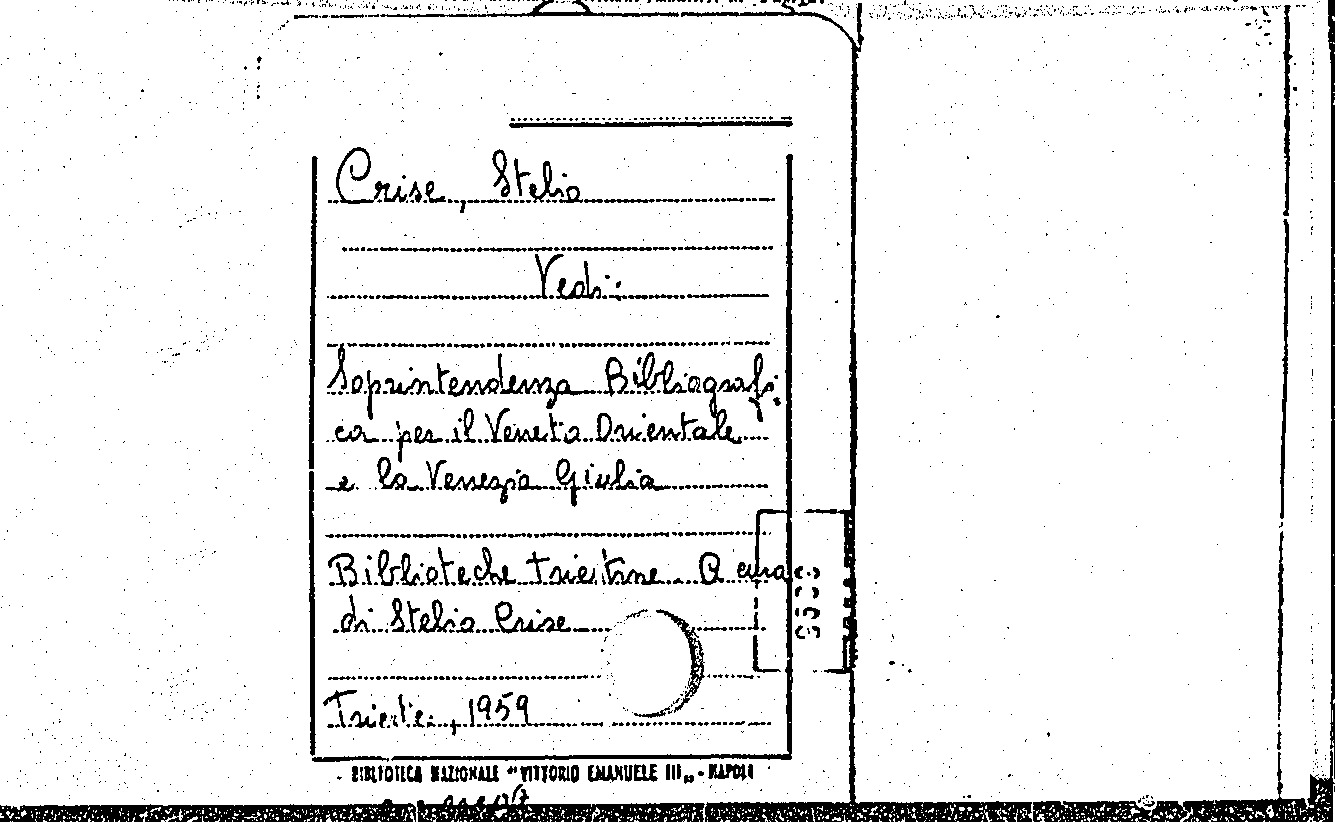 Crise, Stelio
Vedi:
Soprintendenza Bibliografi-
ca per il Veneto Orientale
e la Venezia Giulia
Biblioteche triestine. A cura
di Stelio Crise
Trieste, 1959
BIBLIOTECA NAZIONALE "VITTORIO EMANUELE III" - NAPOLI